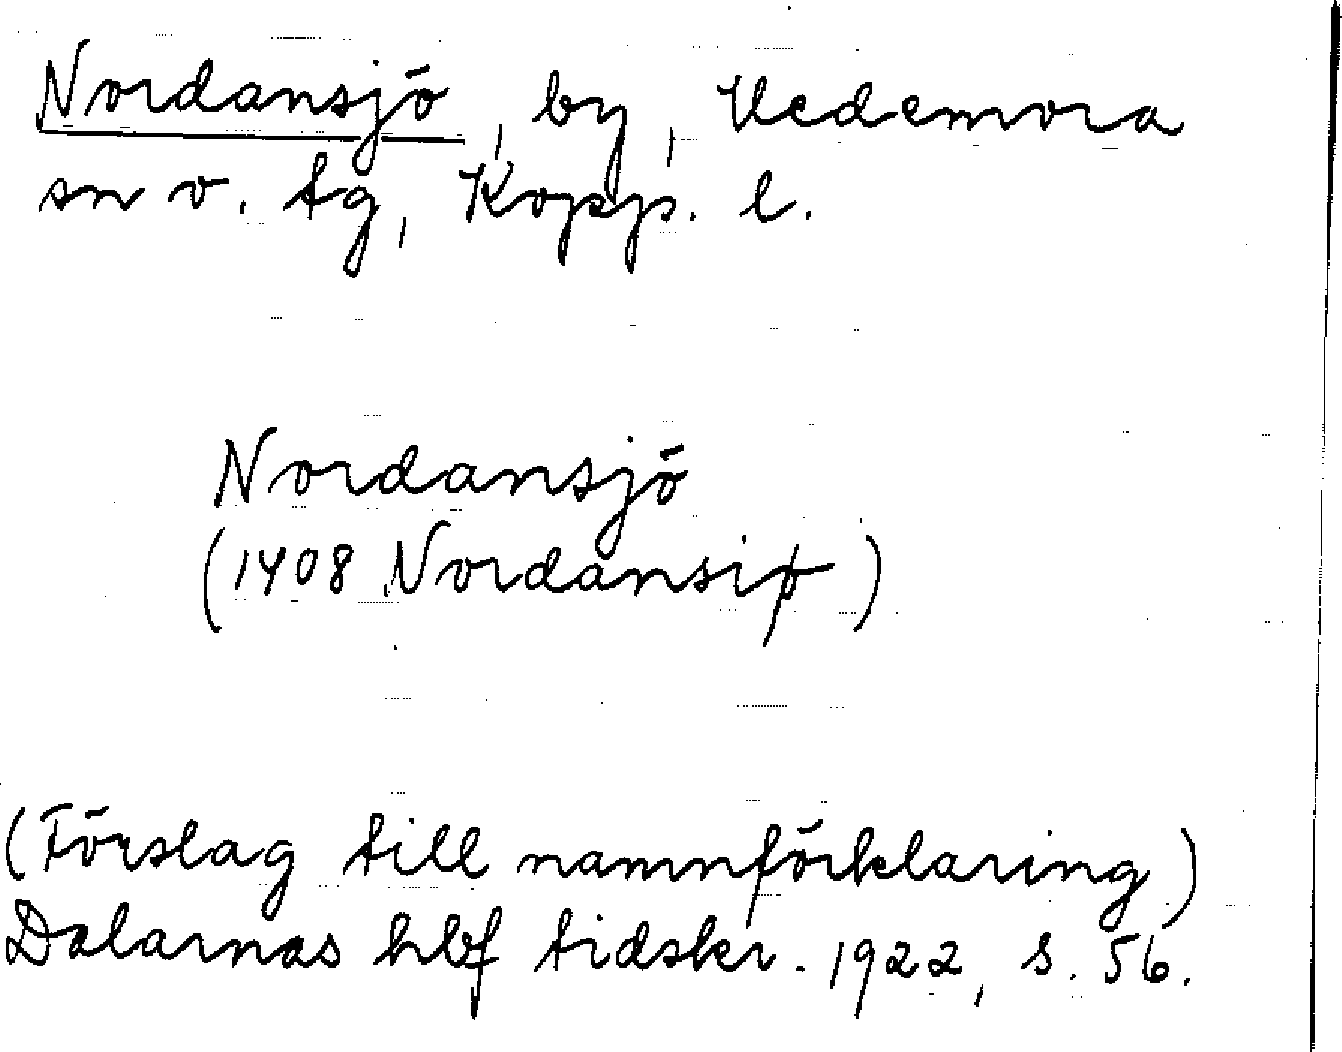 Nordansjö, by, Hedemora
sn v. tg, Kopp. l.
Nordansjö
(1408 Nordansiø)
(Förslag till namnförklaring)
Dalarnas hbf tidskr. 1922, s. 56.